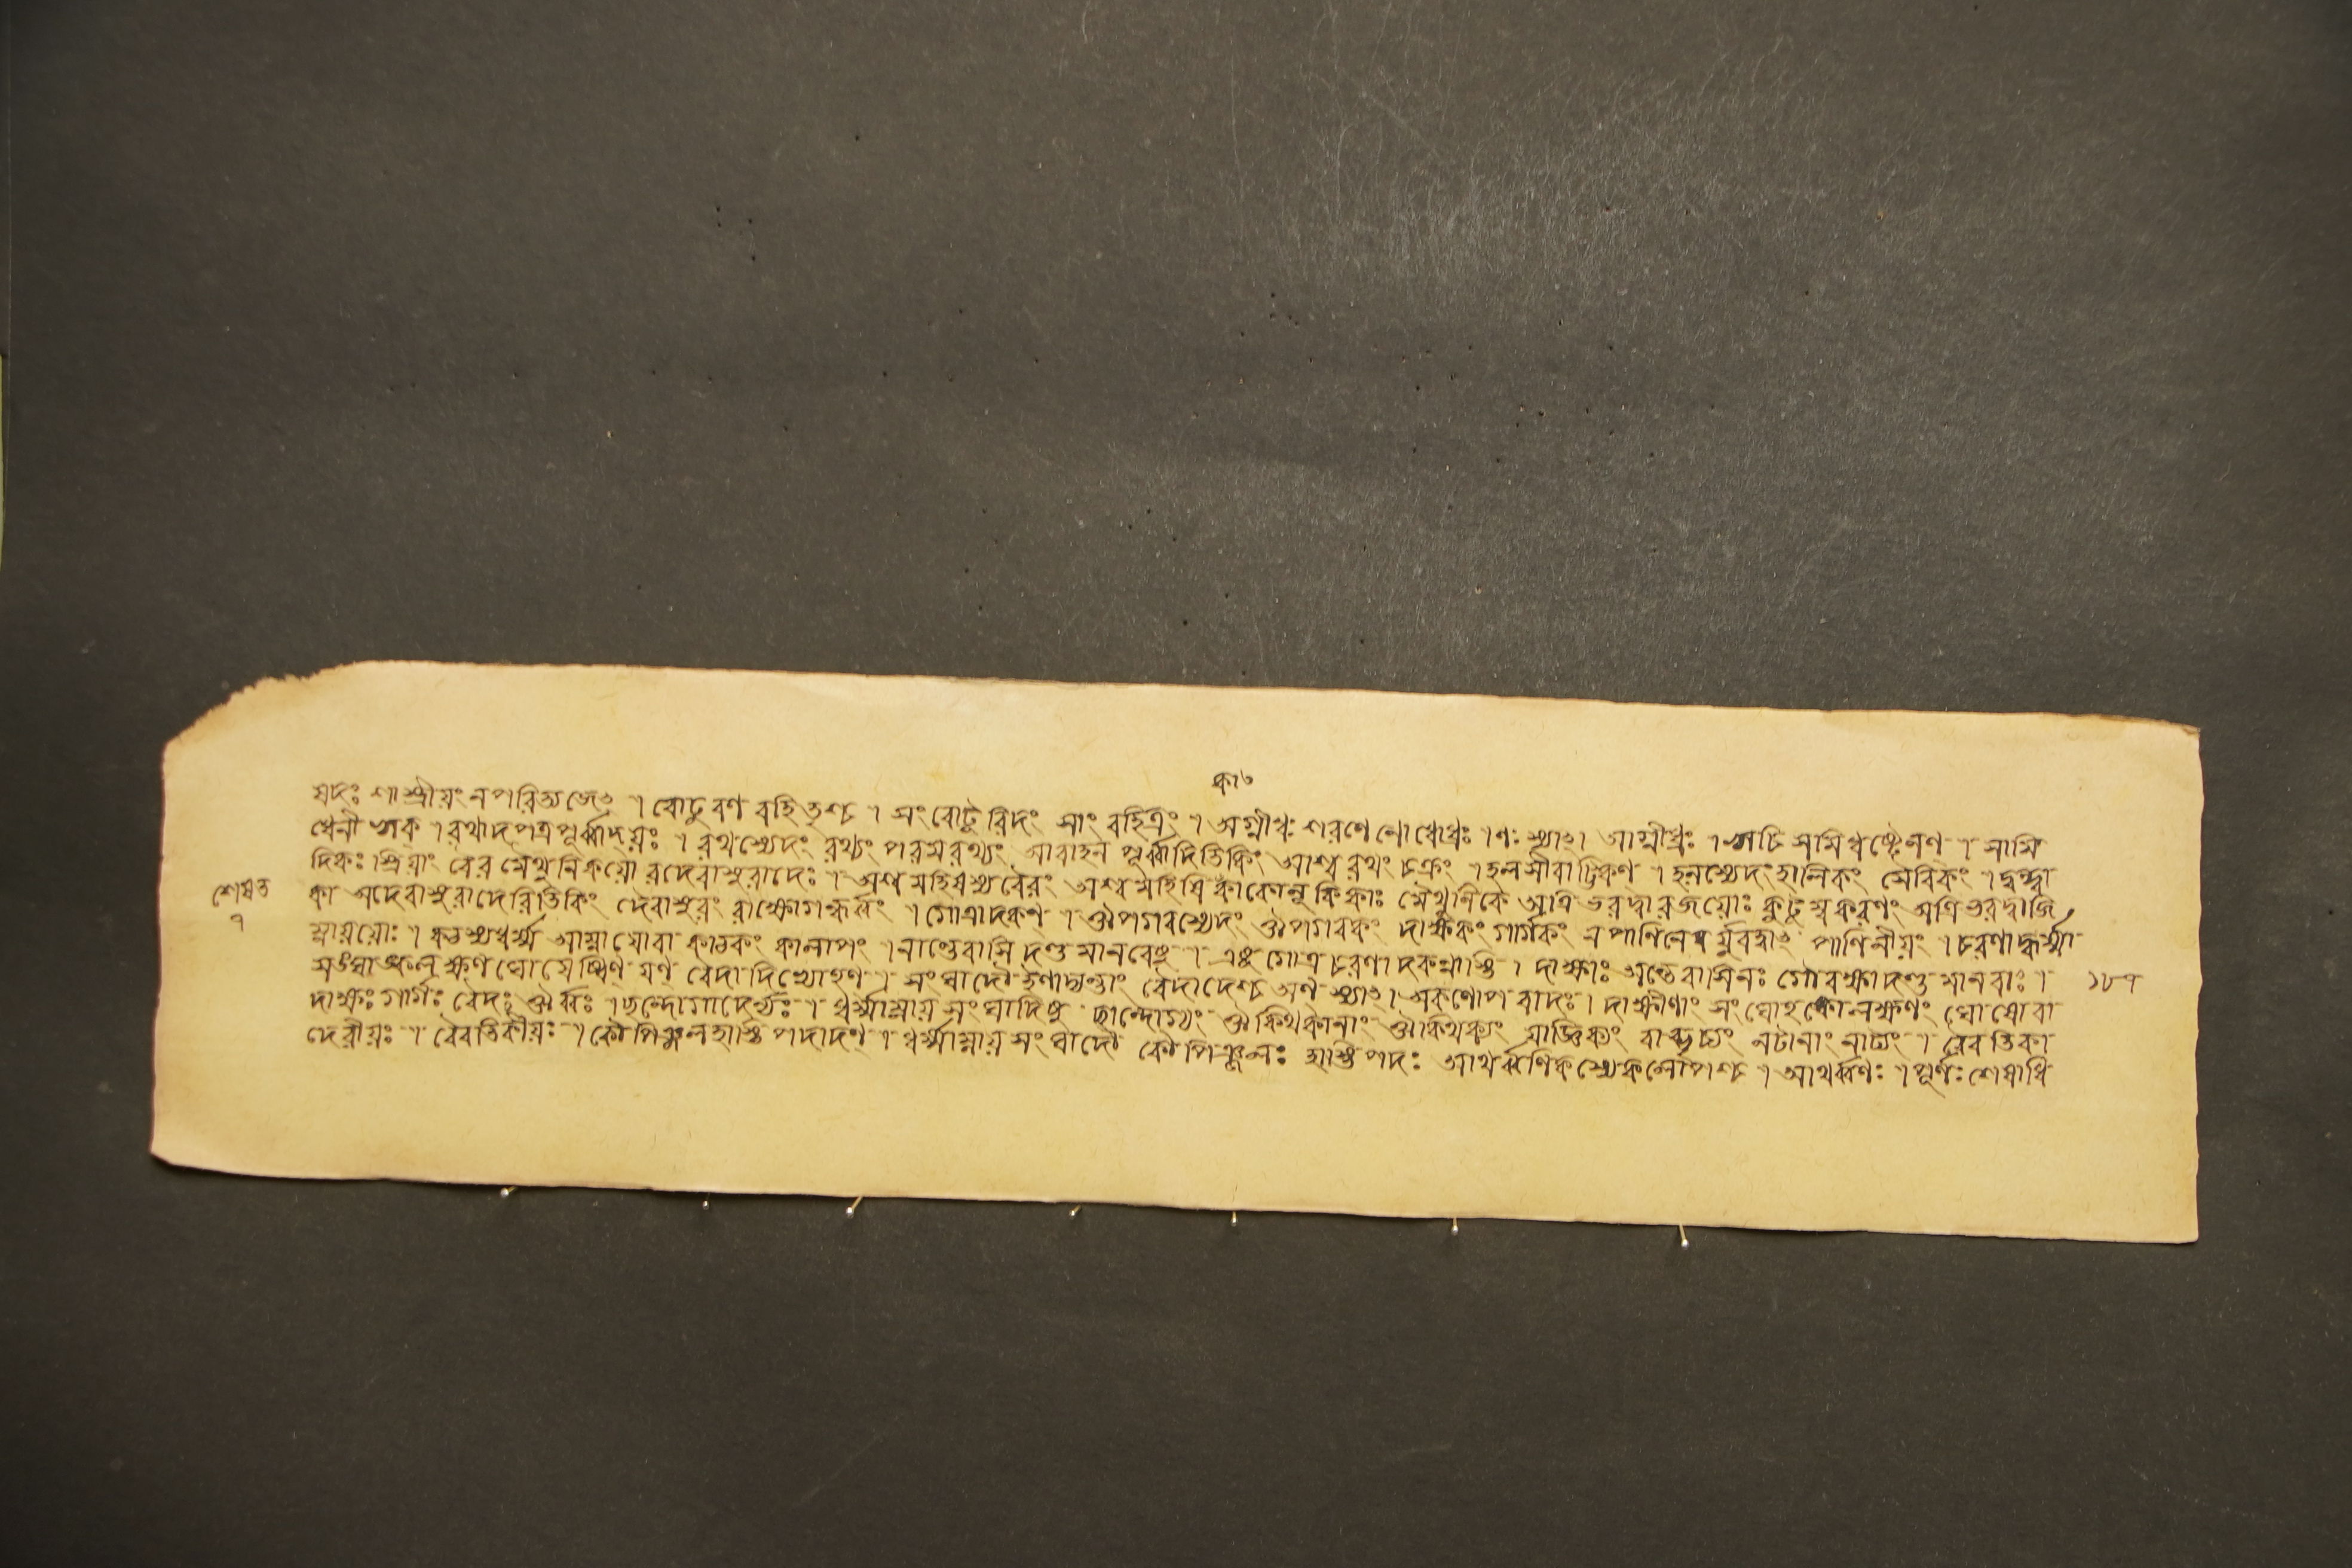 কা৩
যদঃ শাস্ত্রীয়ং ন পরিত্যজেৎ । বোঢুরণ বহিতৃশ্চ । সংবোঢুরিদং সাং বহিত্রং । অগ্নীধঃ শরণে ণো ধোধ্রঃ । ণঃ স্যাৎ । আগ্নীধ্রঃ । সমিধষ্টেনণ । সামি
ধেনী ঋক । রথাদ পত্রপূর্ব্বাদয়ঃ । রথস্যেদং রথ্যং পরমরথ্যং আবাহন পূর্ব্বাদিতিকিং আশ্বরথং চক্রং । হলসীরাট্টিকণ । হলস্যেদং হালিকং সৈরিকং । দ্বন্দ্বা
দিকঃ স্ত্রিয়াং বৈর মৈথুনিকয়ো রদেবাসুরাদেঃ । অশ্ব মহিষস্য বৈরং অশ্ব মহিষিকা কাকোলুকিকাঃ মৈথুনিকে অত্রি ভরদ্বারজয়োঃ কুটুম্ব করণং অত্রিভরদ্বাজি
কা অদেবাসুরাদেরিতিকিং দৈবাসুরং রাক্ষোগন্ধর্ব্বং । গোত্রাদকণ । ঔপগবস্যেদং ঔপগবকং দাক্ষকং গার্গকং ন পাণিনের্য্যুবত্বাৎ পাণিনীয়ং । চরণাদ্ধর্ম্মা
ম্নায়য়োঃ । কঠস্য ধর্ম্ম আম্নাযোবা কাঠকং কালাপং । নান্তেবাসি দণ্ড মানবেষু । এষু গোত্র চরণাদকন্নাস্তি । দাক্ষাঃ অন্তেবাসিনঃ গৌবক্ষাদণ্ড মানবাঃ ।
সংঘাঙ্কলক্ষণ ঘোষেষ্বিণ যণ বেদাদিভ্যোহণ । সংঘাদৌ ইণাদ্যন্তাং বেদাদেশ্চ অণ স্যাৎ । অকণোপবাদঃ । দাক্ষীণাং সংঘোহঙ্কোলক্ষণং ঘোষোবা
দাক্ষঃ গার্গঃ বৈদঃ ঔর্ব্বঃ । ছন্দোগাদের্ণ্যঃ । ধর্ম্মাম্নায় সংঘাদিষু ছান্দোগ্যং ঔকিথকানাং ঔকিথক্যং যাজ্ঞিক্যং বাহ্বৃচ্যং নটানাং নাট্যং । রৈবতিকা
দেরীয়ঃ । রৈবতিকীয়ঃ । কৌপিঞ্জলহাস্তি পদাদণ । ধর্ম্মাম্নায় সংঘাদৌ কৌপিঞ্জলঃ হাস্তিপদঃ আথর্ব্বণিকস্যেকলোপশ্চ । আথর্ব্বণঃ । পূর্ণঃ শেষাধি
শেষত
৭
১৮৭